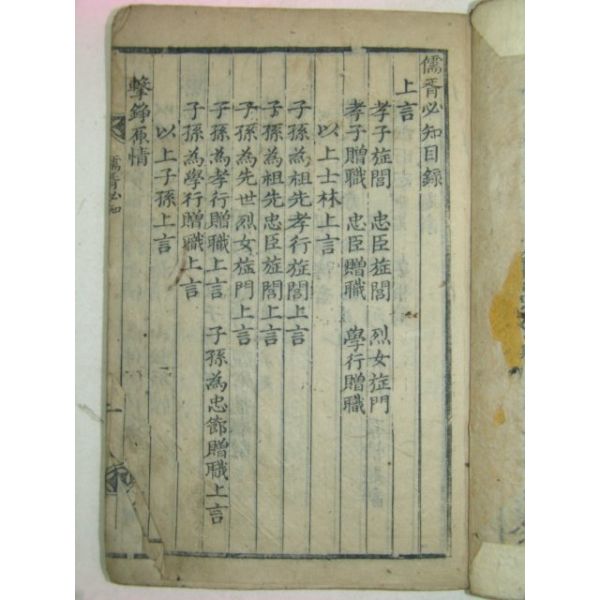 儒胥必知目錄
上言
孝子㫌閭 忠臣㫌閭 烈女㫌門
孝子贈職 忠臣贈職 學行贈職
以上士林上言
子孫為祖先孝行㫌閭上言
子孫為祖先忠臣㫌閭上言
子孫為先世烈女㫌門上言
子孫為孝行贈職上言 子孫為忠節贈職上言
子孫為學行贈職上言
以上子孫上言
擊錚原情
儒胥必知
一